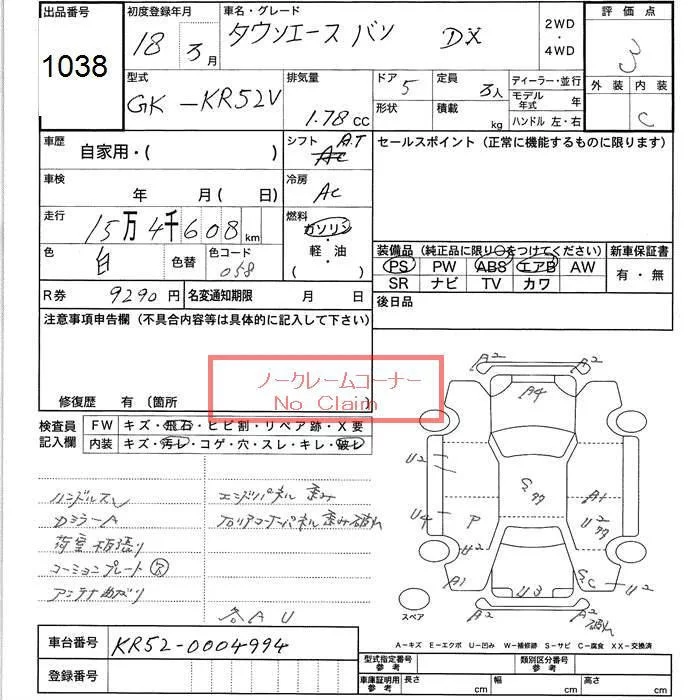 出品番号
1038
初度登録年月
18 3月
車名・グレード
タウンエース バン DX
2WD
・
4WD
評価点
3
外装 内装
C
型式
GK-KR52V
排気量
1.78 cc
ドア 5
形状
定員 3人
積載 kg
ディーラー・並行
モデル年式 年
ハンドル 左・右
車歴
自家用・( )
シフト A.T
冷房 AC
車検
年 月 ( 日)
走行
15万4千608km
燃料
ガソリン
・
軽・油
( )
色 白
色替
色コード 058
R券 9290円
名変通知期限 月 日
セールスポイント (正常に機能するものに限ります)
装備品 (純正品に限り○をつけてください)
PS PW ABS エアB AW
SR ナビ TV カワ
新車保証書
有・無
後日品
注意事項申告欄 (不具合内容等は具体的に記入して下さい)
修復歴 有 〔箇所
ノークレームコーナー
No Claim
検査員
記入欄
FW キズ・飛石・ヒビ割・リペア跡・X要
内装 キズ・汚レ・コゲ・穴・スレ・キレ・破レ
ハンドルスレ
DミラーA
荷室板張り
コーションプレート
アンテナ曲がり
エンドパネル 歪み
各AU
A2 A2
A4
U2
S
U4 P
A1
U2
U2
A1 U3 SC U2
A2 A2
破れ
スペア
A-キズ E-エクボ U-凹み W-補修跡 S-サビ C-腐食 XX-交換済
車台番号 KR52-0004994
登録番号
型式指定番号
参考
類別区分番号
参考
車庫証明用
参考
長さ cm 幅 cm 高さ cm